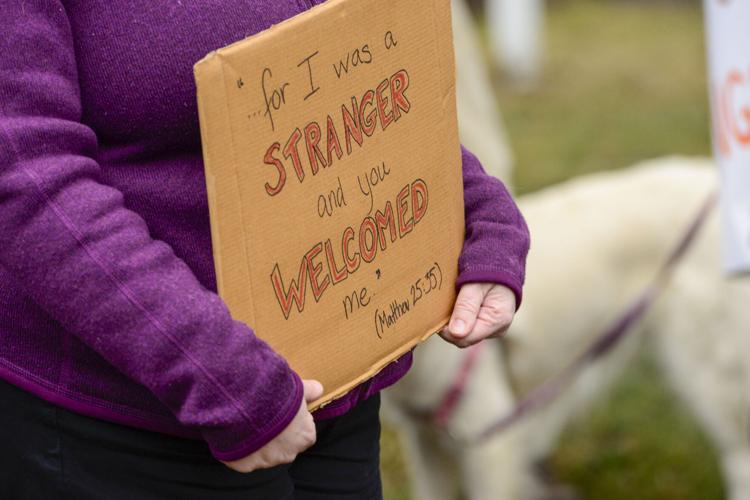 "...for I was a
STRANGER
and you
WELCOMED
me."
(Matthew 25:35)